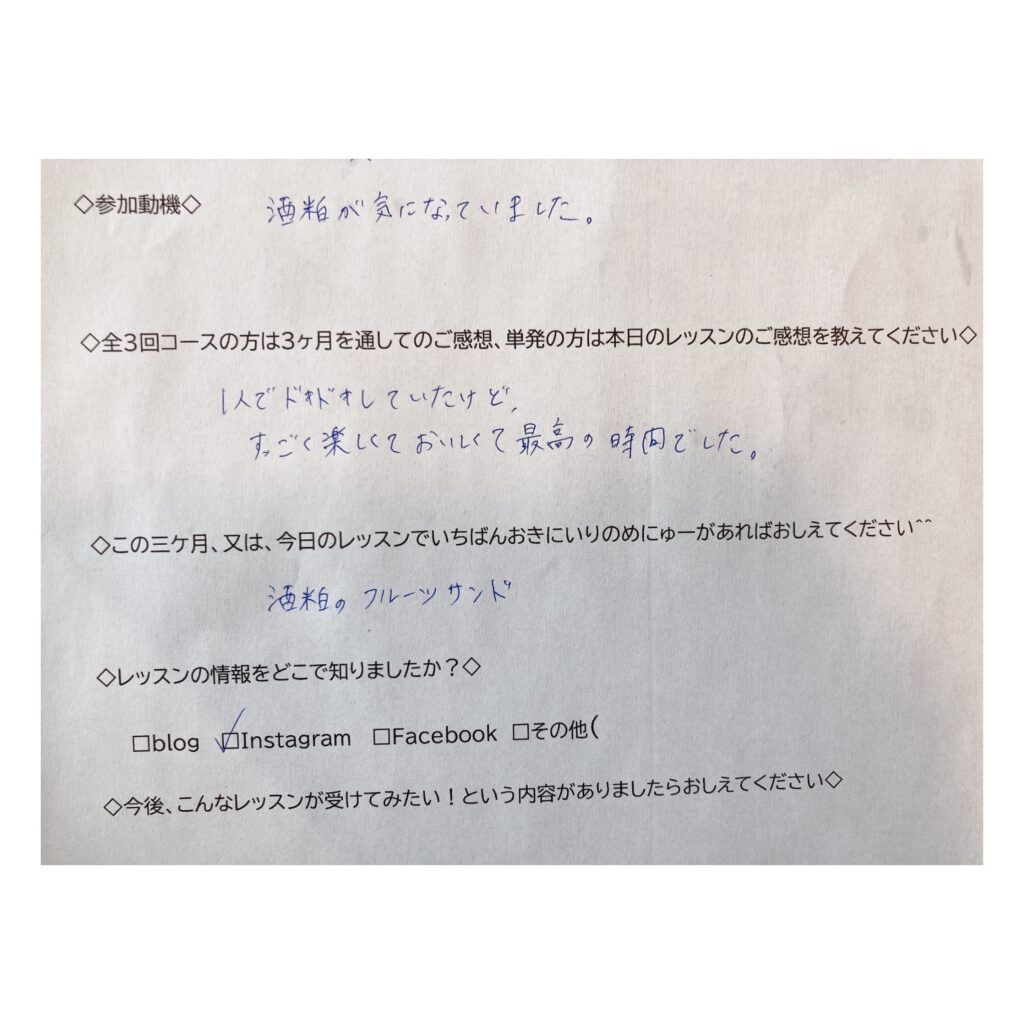 ◇参加動機◇ 酒粕が気になっていました。
◇全3回コースの方は3ヶ月を通してのご感想、単発の方は本日のレッスンのご感想を教えてください◇
1人でドキドキしていたけど、
すっごく楽しくておいしくて最高の時間でした。
◇この三ケ月、又は、今日のレッスンでいちばんおきにいりのめにゅーがあればおしえてください^^
酒粕のフルーツサンド
◇レッスンの情報をどこで知りましたか？◇
□blog ☑Instagram □Facebook □その他(
◇今後、こんなレッスンが受けてみたい！という内容がありましたらおしえてください◇